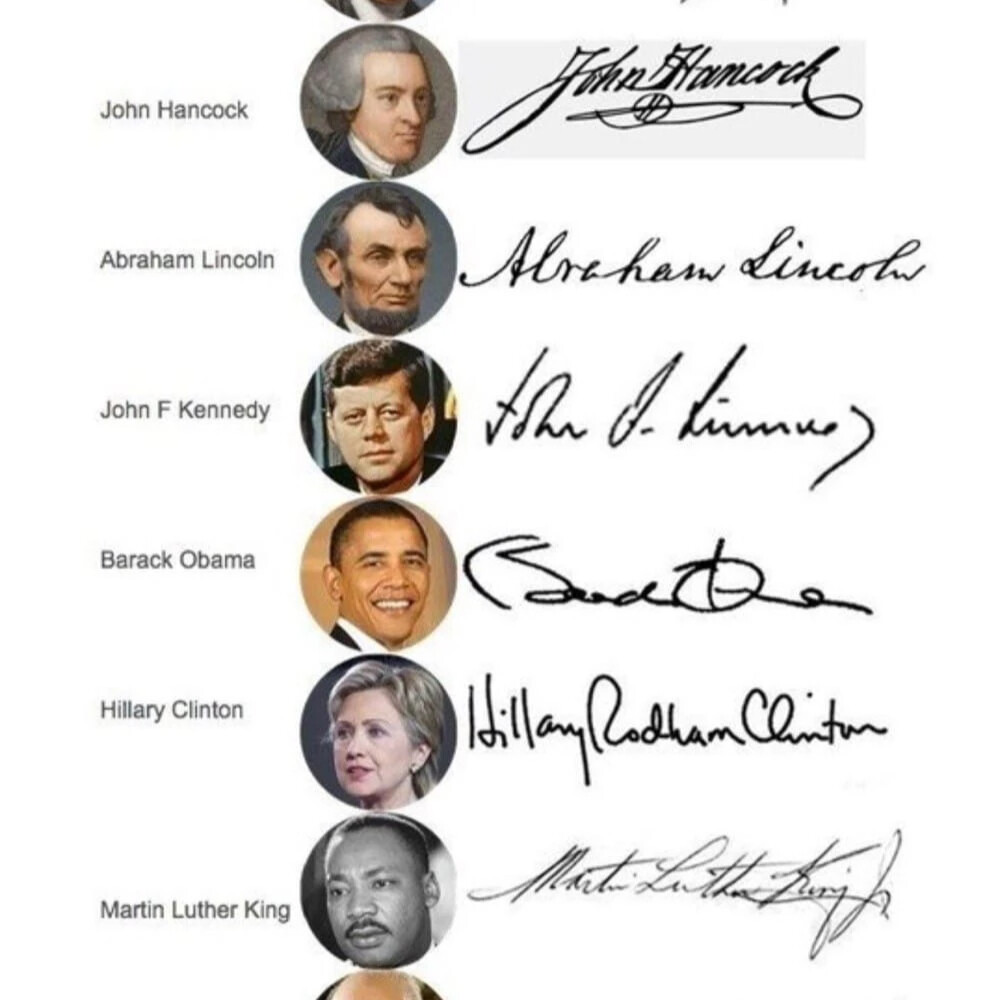 John Hancock John Hancock
Abraham Lincoln Abraham Lincoln
John F Kennedy John F. Kennedy
Barack Obama
Hillary Clinton Hillary Rodham Clinton
Martin Luther King Martin Luther King Jr